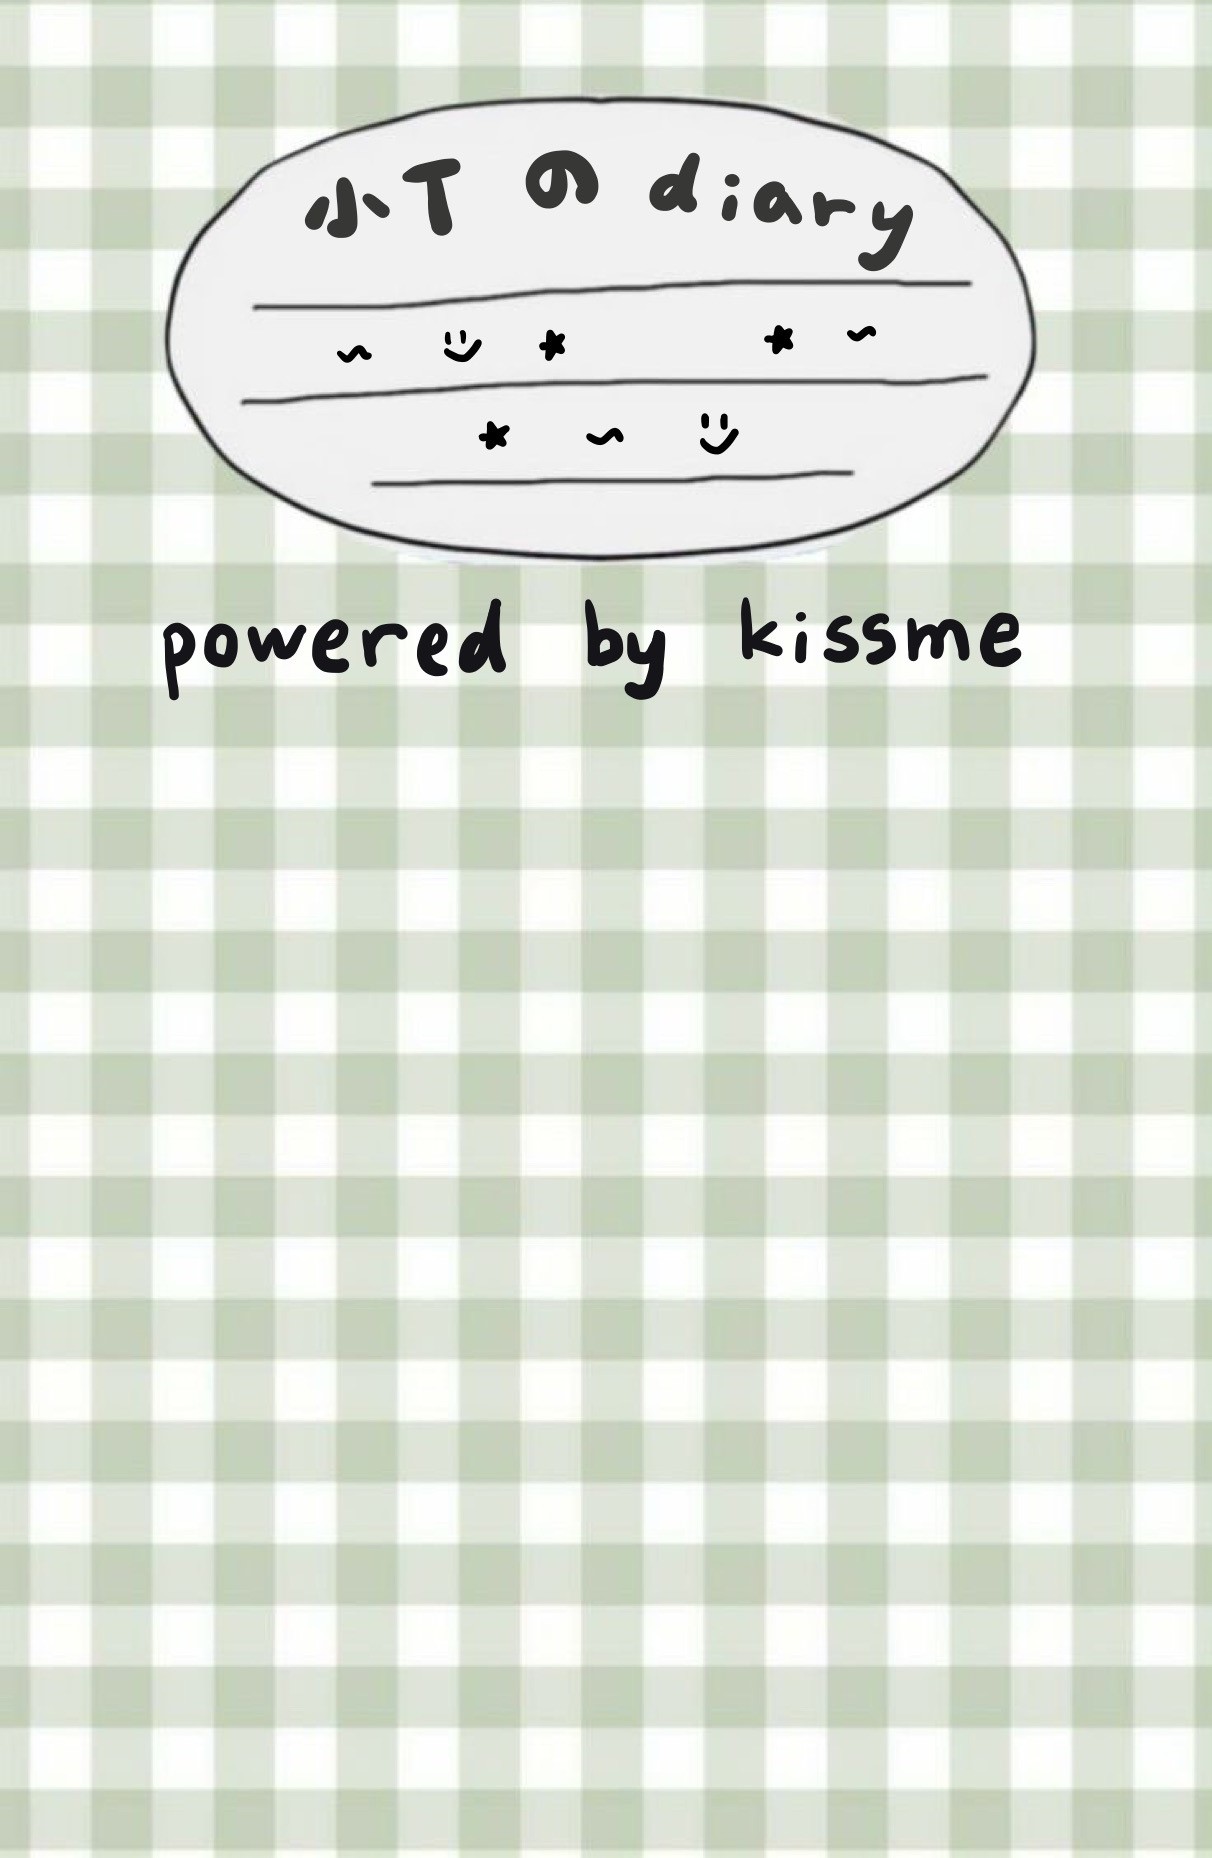 小T の diary
powered by kissme